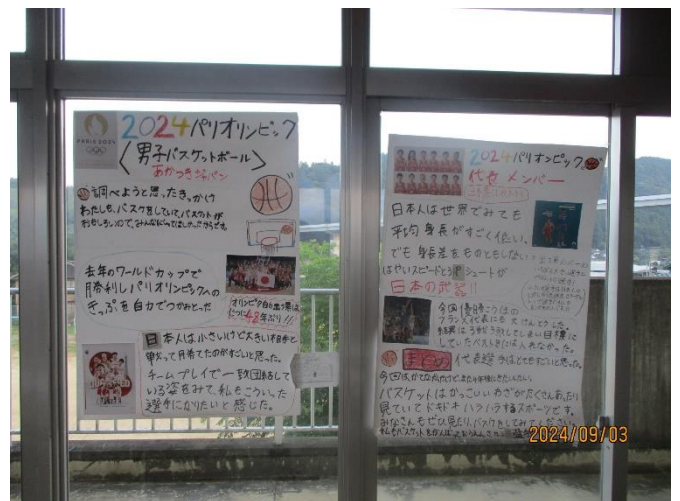 PARIS 2024
2024パリオリンピック
〈男子バスケットボール〉
あかつきジャパン
調べようと思ったきっかけ
わたしも、バスケをしていて、バスケットが
おもしろいので、みんなに
去年のワールドカップで
勝利しパリオリンピックへの
きっぷを自力でつかみとった
オリンピック自力出場は
じつに48年ぶり!!
日本人は小さいけど大きい相手と
戦って勝てたのがすごいと思った。
チームプレイで一致団結して
いる姿をみて、私もこういった
選手になりたいと感じた。
2024パリオンピック
代表メンバー
日本人は世界でみても
平均身長がすごく低い、
でも身長差をものともしない
はやいスピードと3Pシュートが
日本の武器!!
今回優勝こうほの
フランス代表にも大けんとうした。
結果は3戦3敗としてしまい目標に
していたベスト8には入れなかった。
まとめ 代表選手はとてもすごいと思った。
バスケットはかっこいいわざがたくさんあったり
見ていてドキドキハラハラするスポーツです。
みなさんもぜひ見たり、バスケをしてみ
2024/09/03